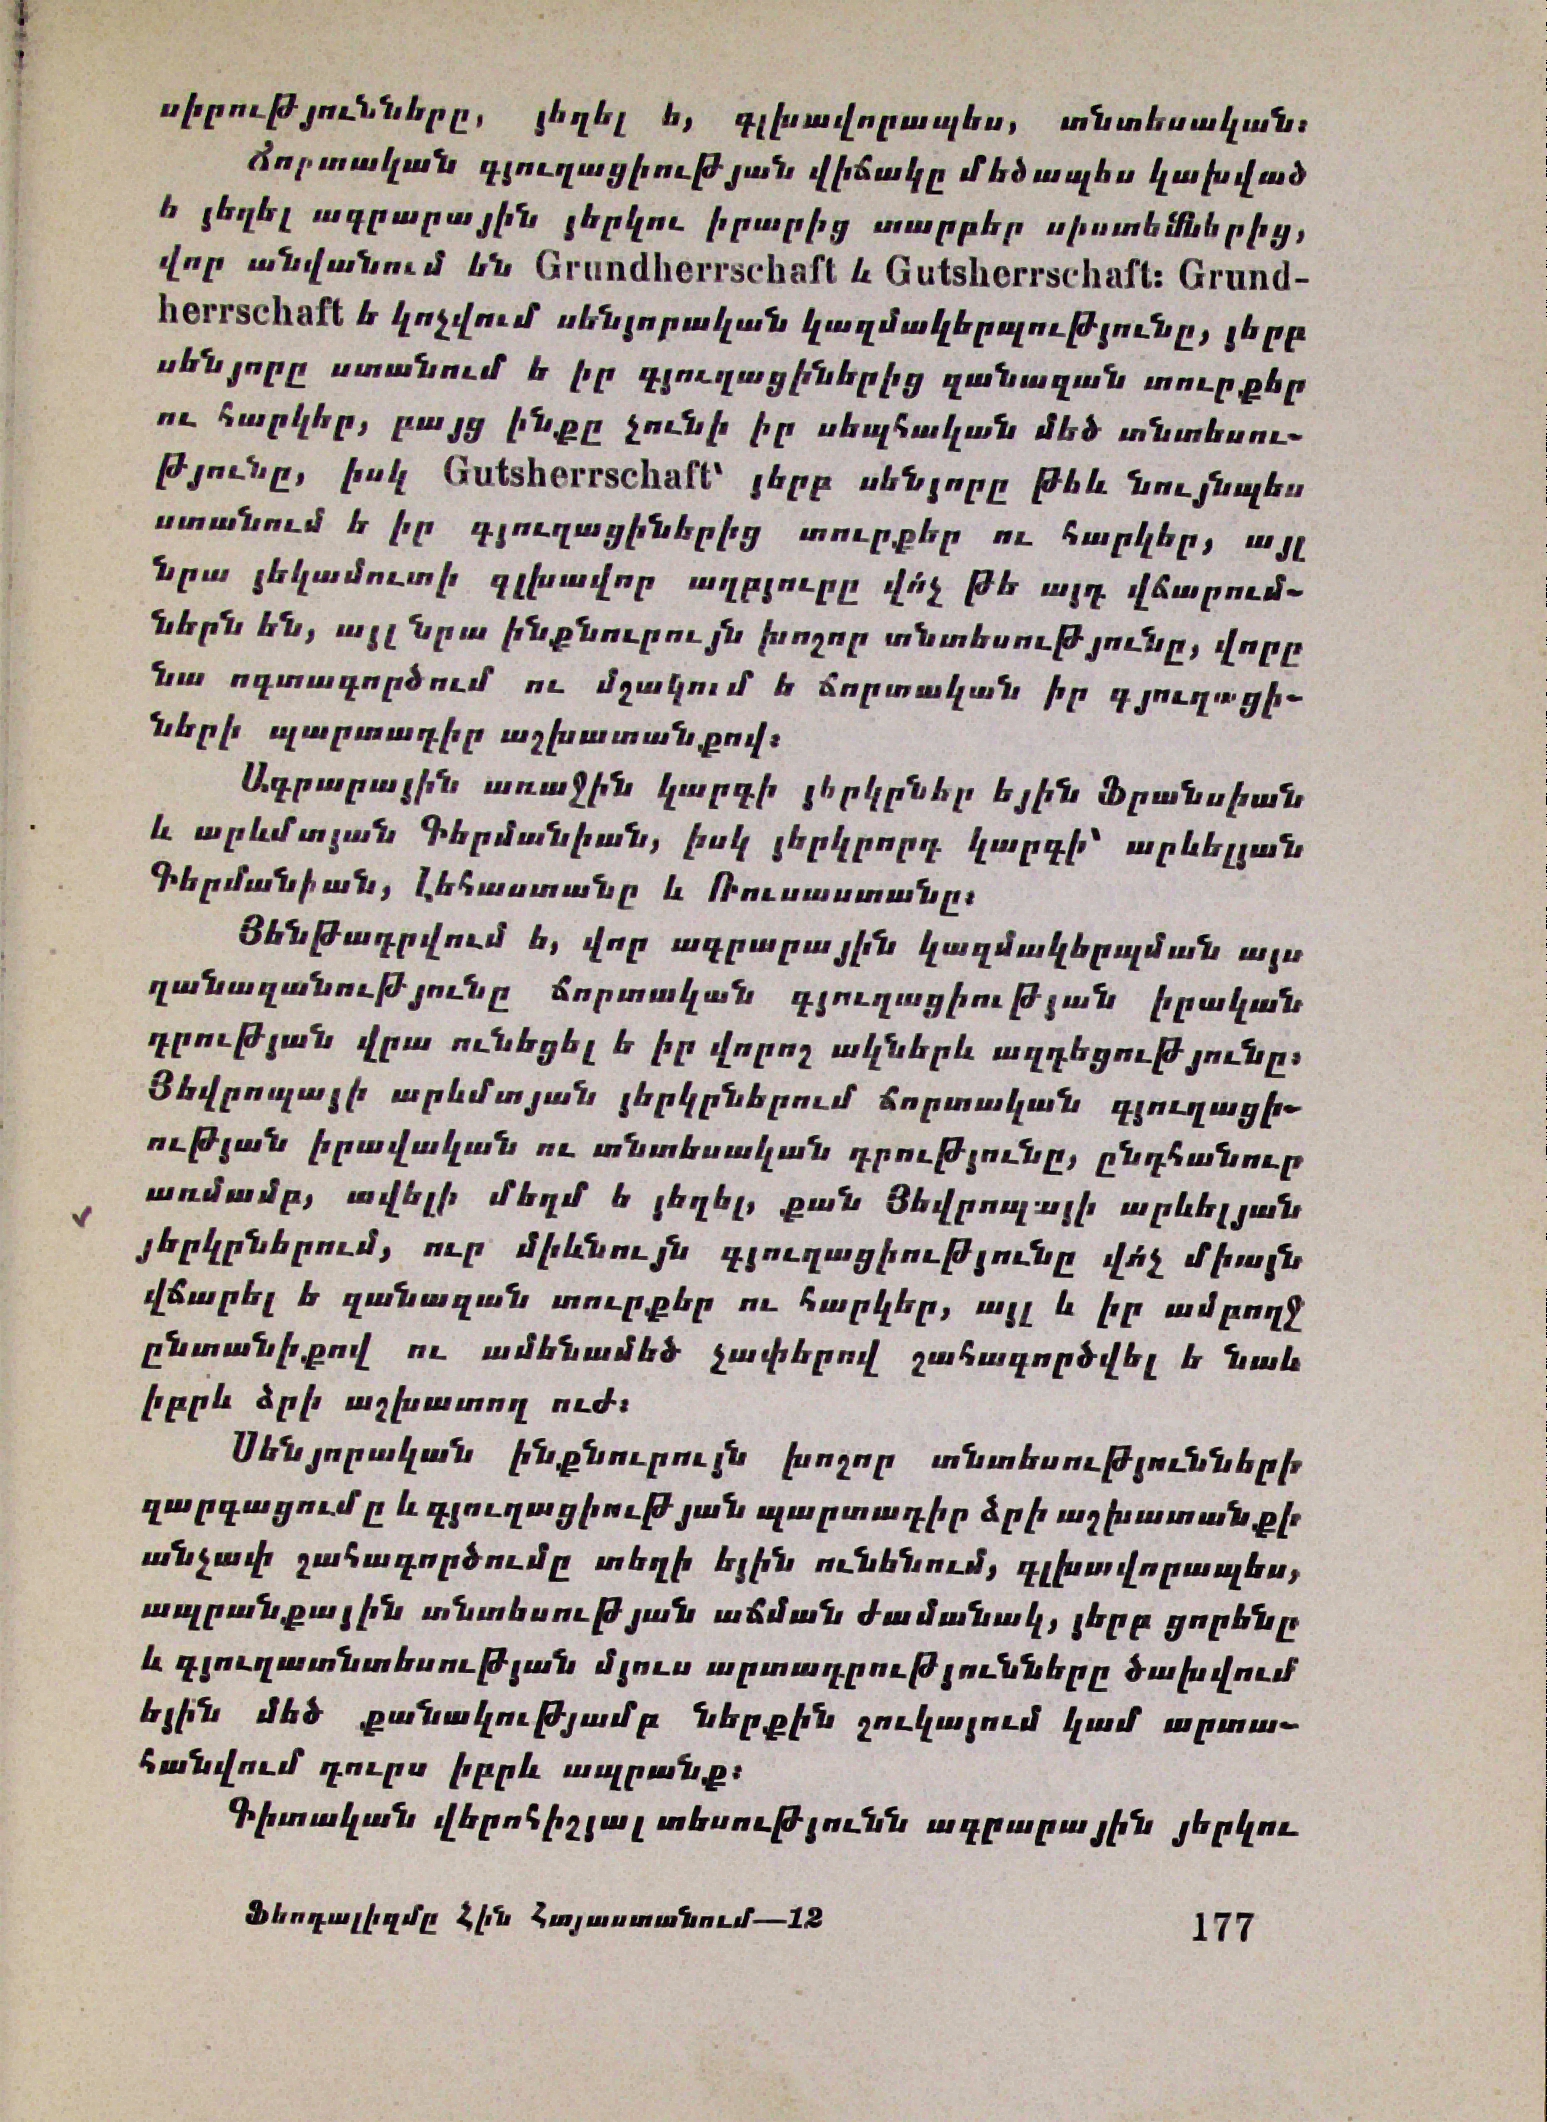 սիրությունները, յեղել ե, գլխավորապես, տնտեսական։
Ճորտական գյուղացիության վիճակը մեծապես կախված
ե յեղել ագրարային յերկու իրարից տարբեր սիստեմներից,
վոր անվանում են Grundherrschaft և Gutsherrschaft: Grund-
herrschaft ե կոչվում սենյորական կազմակերպությունը, յերբ
սենյորը ստանում ե իր գյուղացիներից զանազան տուրքեր
ու հարկեր, բայց ինքը չունի իր սեպհական մեծ տնտեսու-
թյունը, իսկ Gutsherrschaft՝ յերբ սենյորը թեև նույնպես
ստանում ե իր գյուղացիներից տուրքեր ու հարկեր, այլ
նրա յեկամուտի գլխավոր աղբյուրը վո՛չ թե այդ վճարում-
ներն են, այլ նրա ինքնուրույն խոշոր տնտեսությունը, վորը
նա ոգտագործում ու մշակում ե ճորտական իր գյուղացի-
ների պարտադիր աշխատանքով։
Ագրարային առաջին կարգի յերկրներ եյին Ֆրանսիան
և արևմտյան Գերմանիան, իսկ յերկրորդ կարգի՝ արևելյան
Գերմանիան, Լեհաստանը և Ռուսաստանը։
Յենթադրվում ե, վոր ագրարային կազմակերպման այս
զանազանությունը ճորտական գյուղացիության իրական
դրության վրա ունեցել ե իր վորոշ ակներև ազդեցությունը։
Յեվրոպայի արևմտյան յերկրներում ճորտական գյուղացի-
ության իրավական ու տնտեսական դրությունը, ընդհանուր
առմամբ, ավելի մեղմ ե յեղել, քան Յեվրոպայի արևելյան
յերկրներում, ուր միևնույն գյուղացիությունը վո՛չ միայն
վճարել ե զանազան տուրքեր ու հարկեր, այլ և իր ամբողջ
ընտանիքով ու ամենամեծ չափերով շահագործվել ե նաև
իբրև ձրի աշխատող ուժ։
Սենյորական ինքնուրույն խոշոր տնտեսությունների
զարգացումը և գյուղացիության պարտադիր ձրի աշխատանքի
անչափ շահագործումը տեղի եյին ունենում, գլխավորապես,
ապրանքային տնտեսության աճման ժամանակ, յերբ ցորենը
և գյուղատնտեսության մյուս արտադրությունները ծախվում
եյին մեծ քանակությամբ ներքին շուկայում կամ արտա-
հանվում դուրս իբրև ապրանք։
Գիտական վերոհիշյալ տեսությունն ագրարային յերկու
Ֆեոդալիզմը Հին Հայաստանում—12
177